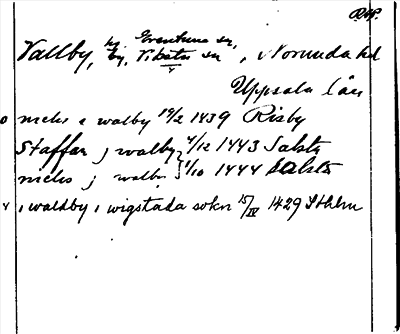 DMS.
Vallby, by, Viksta sn, Norunda hd
Uppsala län
o niclis e walby 19/2 1439 Risby
Staffan j walby 4/12 1443 Salsta
niclis j walby 1/10 1444 Salsta
v i waldby i wigstada sokn 15/IV 1429 Sthlm